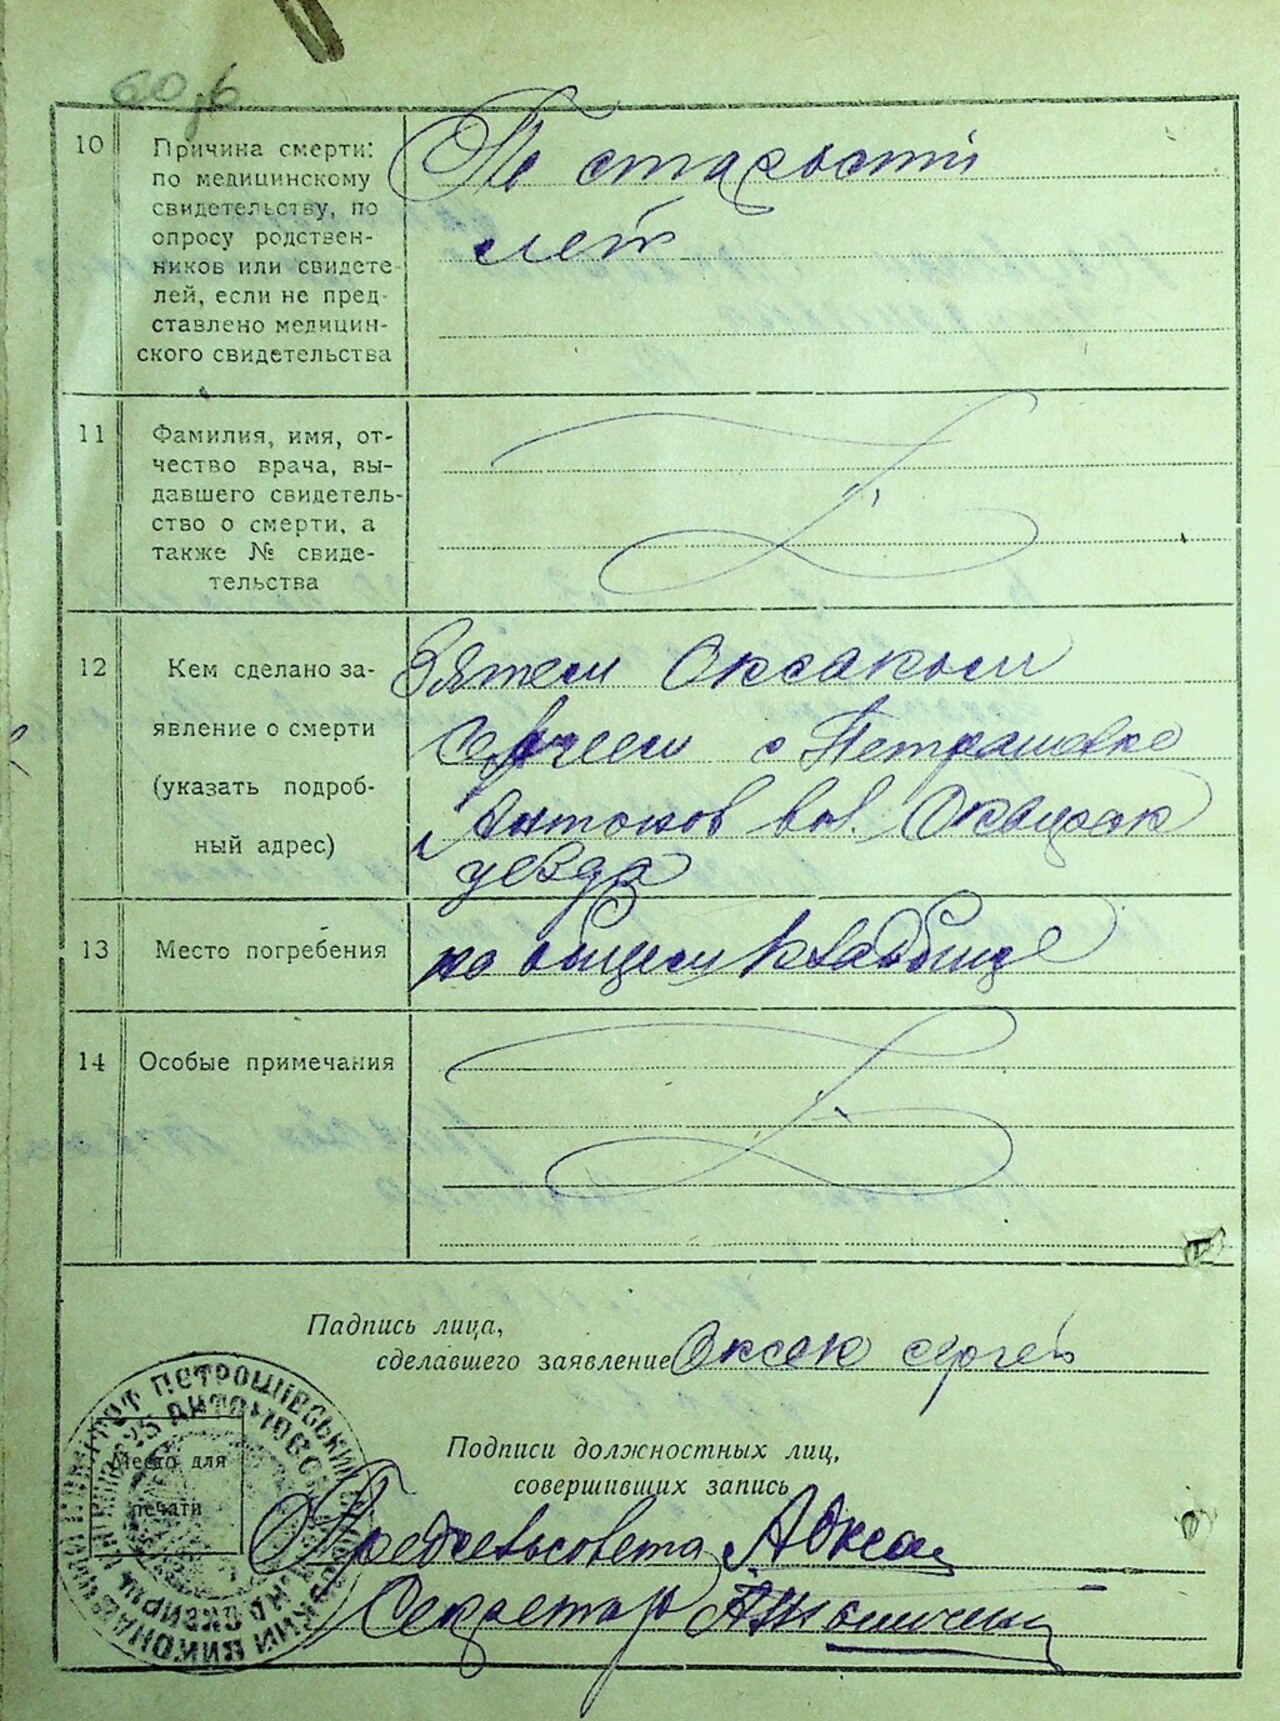 60
10
Причина смерти:
по медицинскому
свидетельству, по
опросу родствен-
ников или свидете-
лей, если не пред-
ставлено медицин-
ского свидетельства
По старости
лет
11
Фамилия, имя, от-
чество врача, вы-
давшего свидетель-
ство о смерти, а
также № свиде-
тельства
12
Кем сделано за-
явление о смерти
(указать подроб-
ный адрес)
Зятем
Сергеем с Петрашовке
Антонов вол.
уезда
13
Место погребения
на общем кладбище
14
Особые примечания
Падпись лица,
сделавшего заявление Оксек Сергей
Подписи должностных лиц,
совершивших запись
Место для
печати
Предсельсовета
Секретарь